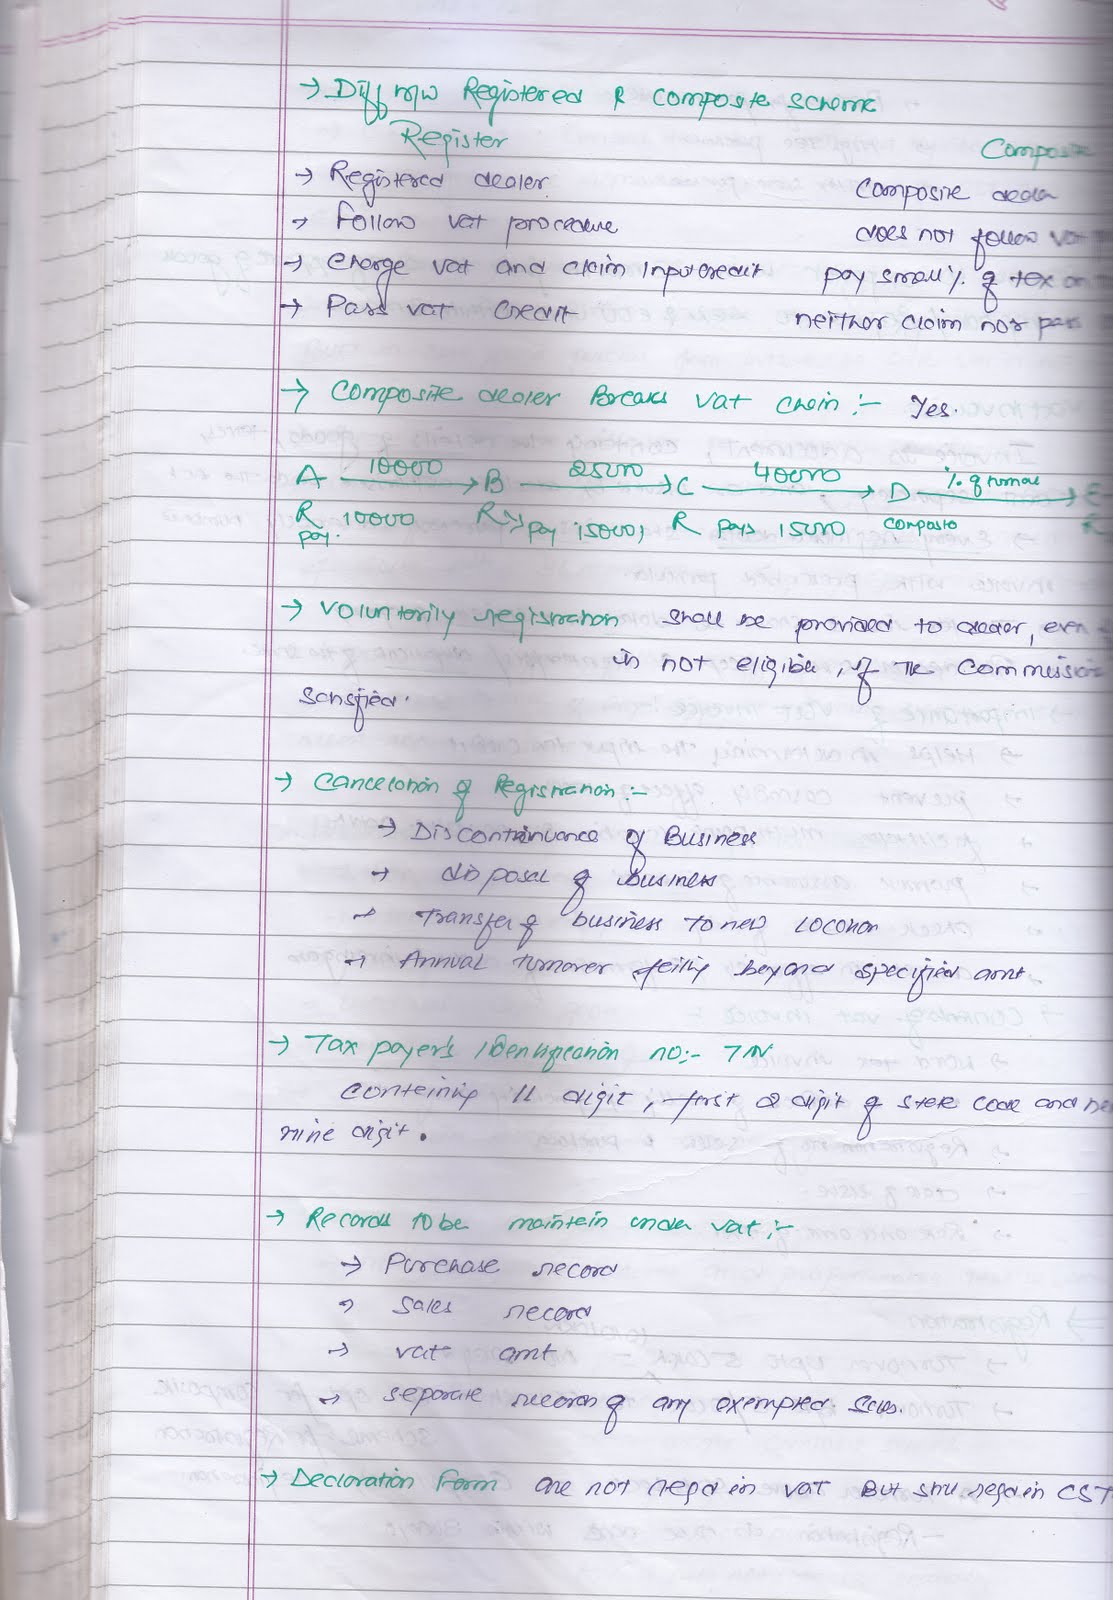 → Diff n/w Registered & composite scheme
Register Composite
→ Registered dealer. composite dealer
→ Follow vat procedure does not follow vat
→ Charge vat and claim input credit pay small % of tax on
→ Pass vat credit neither claim nor pass
→ Composite dealer Breaks vat chain :- Yes.
A 10000 → B 25000 → C 40000 → D % of turnover → E
R 10000 R → pay 15000, R pays 15000 composite R
pay.
→ Voluntarily registration shall be provided to dealer, even
is not eligible, if the Commissio
satisfied.
→ Cancelation of Registration :-
→ Discontinuance of Business
→ disposal of business
→ Transfer of business to new location
→ Annual turnover falling beyond specified amt.
→ Tax payer's Identification no:- TIN
Containing 11 digit, first 2 digit of state code and ne
nine digit.
→ Records to be maintain under vat :-
→ Purchase record
→ sales record
→ vat amt
→ separate record of any exempted sales.
→ Declaration Form are not reqd in vat But still reqd in CST